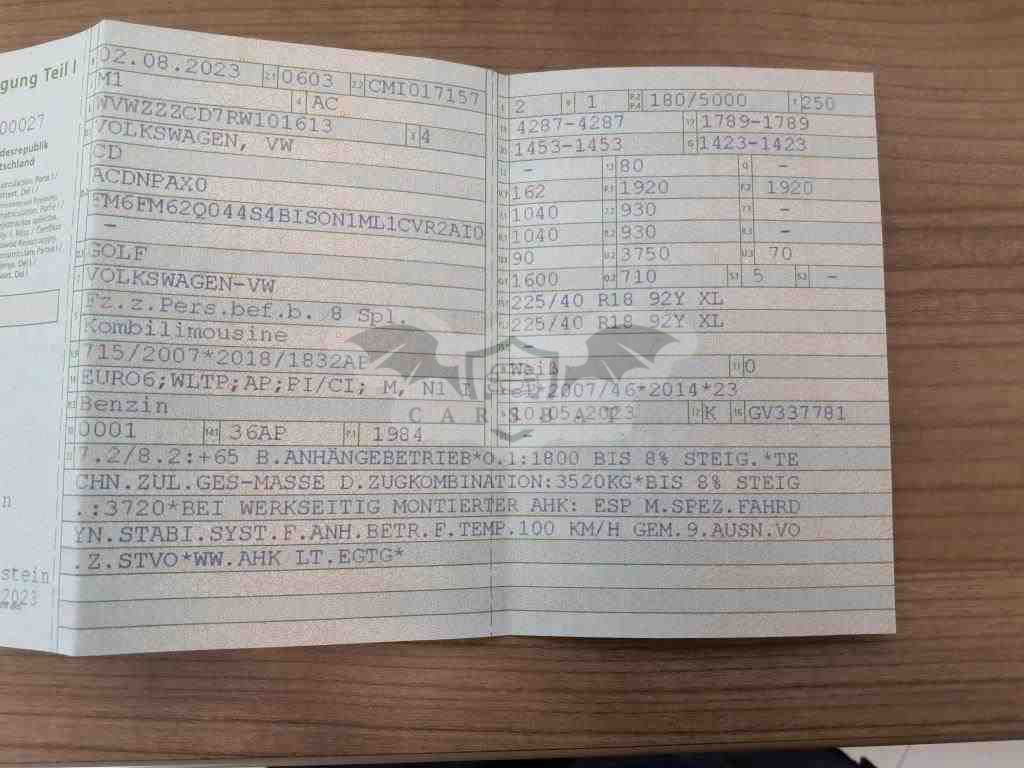 gung Teil I
00027
desrepublik
tschland
stein
2023
02.08.2023 2.1 0603 2.2 CMI017157
M1 4 AC
WVWZZZCD7RW101613 3 4
VOLKSWAGEN, VW
CD
ACDNPAX0
FM6FM62Q044S4BISON1ML1CVR2AI0
-
GOLF
VOLKSWAGEN-VW
Fz.z.Pers.bef.b. 8 Spl.
Kombilimousine
715/2007*2018/1832AP
EURO6;WLTP;AP;PI/CI; M, N1 I
Benzin
0001 36AP 1984
2 1 180/5000 250
4287-4287 1789-1789
1453-1453 1423-1423
- 80 -
162 1920 1920
1040 930 -
1040 930 -
90 3750 70
1600 710 5 -
225/40 R18 92Y XL
225/40 R18 92Y XL
-
Weiß 0
*2007/46*2014*23
10.05.2023 K GV337781
-
CARSBAT
7.2/8.2:+65 B.ANHÄNGEBETRIEB*O.1:1800 BIS 8% STEIG.*TE
CHN.ZUL.GES-MASSE D.ZUGKOMBINATION:3520KG*BIS 8% STEIG
.:3720*BEI WERKSEITIG MONTIERTER AHK: ESP M.SPEZ.FAHRD
YN.STABI.SYST.F.ANH.BETR.F.TEMP.100 KM/H GEM.9.AUSN.VO
.Z.STVO*WW.AHK LT.EGTG*